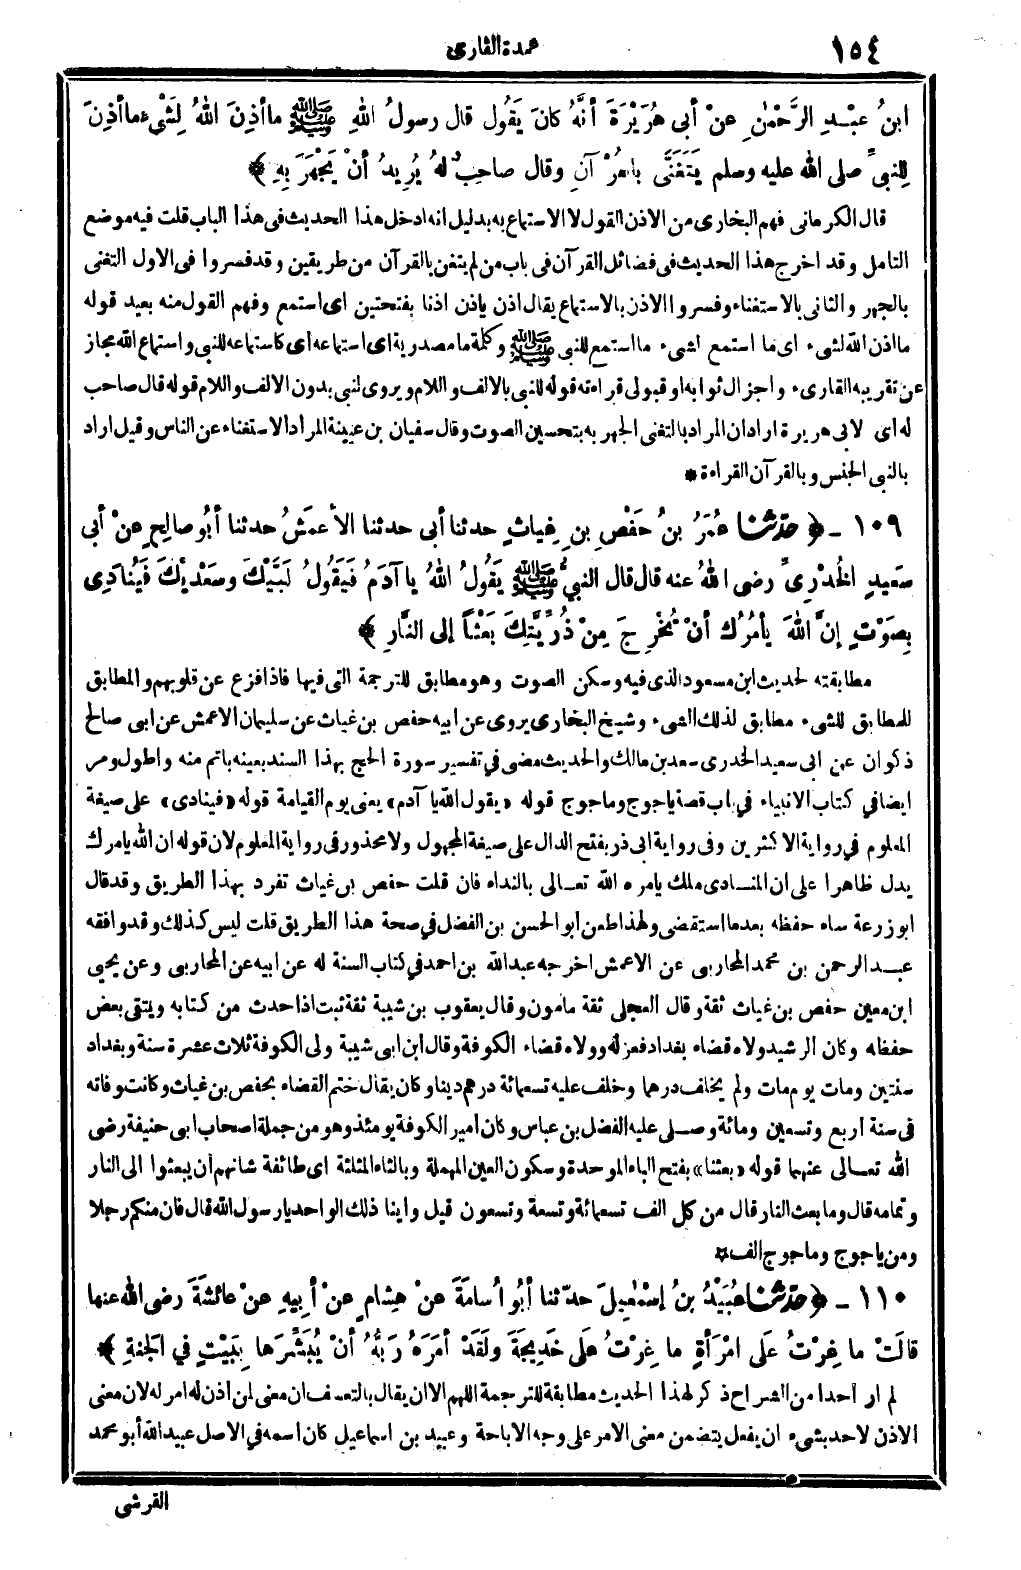 ١٥٤
عمدة القارى
ابنُ عبْدِ الرَّحْمٰنِ عنْ أبى هُرَيْرَةَ أنَّهُ كانَ يَقُول قال رسولُ اللهِ ﷺ ما أذِنَ اللهُ لِشَىْءٍ ما أذِنَ
لِلنبىِّ صلى الله عليه وسلم يَتَغَنَّى بالقُرْآنِ وقال صاحِبٌ لهُ يُرِيدُ أنْ يَجْهَرَ بِهِ ﴾
قال الكرمانى فهم البخارى من الاذن القول لا الاستماع به بدليل انه ادخل هذا الحديث فى هذا الباب قلت فيه موضع
التامل وقد اخرج هذا الحديث فى فضائل القرآن فى باب من لم يتغن بالقرآن من طريقين وقد فسروا فى الاول التغنى
بالجهر والثانى بالاستغناء وفسروا الاذن بالاستماع يقال اذن ياذن اذنا بفتحتين اى استمع وفهم القول منه بعيد قوله
ما اذن الله لشىء اى ما استمع لشىء ما استمع للنبى ﷺ وكلمة ما مصدرية اى استماعه اى كاستماعه للنبى واستماع الله مجاز
عن تقريبه القارىء واجزال ثوابه او قبولى قراءته قوله للنبى بالالف واللام ويروى لنبى بدون الالف واللام قوله قال صاحب
له اى لابى هريرة اراد ان المراد بالتغنى الجهر به بتحسين الصوت وقال سفيان بن عيينة المراد الاستغناء عن الناس وقيل اراد
بالنبى الجنس وبالقرآن القراءة *
١٠٩ ـ ﴿ حدّثنا عُمَرُ بنُ حَفْصِ بنِ غِياثٍ حدثنا أبى حدثنا الأعمَشُ حدثنا أبُو صالِحٍ عنْ أبى
سَعِيدٍ الخُدْرِىِّ رضى اللهُ عنه قال قال النبىُّ ﷺ يَقُولُ اللهُ يا آدَمُ فَيَقُولُ لَبَّيْكَ وسَعْدَيْكَ فَيُنادِى
بِصَوْتٍ إنَّ اللهَ يأمُرُكَ أنْ تُخْرِجَ مِنْ ذُرِّيَّتِكَ بَعْثاً إلى النَّارِ ﴾
مطابقته لحديث ابن مسعود الذى فيه وسكن الصوت وهو مطابق للترجمة التى فيها فاذا فزع عن قلوبهم والمطابق
للمطابق للشىء مطابق لذلك الشىء وشيخ البخارى يروى عن ابيه حفص بن غياث عن سليمان الاعمش عن ابى صالح
ذكوان عن ابى سعيد الخدرى سعد بن مالك والحديث مضى في تفسير سورة الحج بهذا السند بعينه باتم منه واطول ومر
ايضا في كتاب الانبياء في باب قصة ياجوج وماجوج قوله «يقول الله يا آدم» يعنى يوم القيامة قوله «فينادى» على صيغة
المعلوم في رواية الاكثرين وفى رواية ابى ذر بفتح الدال على صيغة المجهول ولا محذور فى رواية المعلوم لان قوله ان الله يامرك
يدل ظاهرا على ان المنادى ملك يامره الله تعالى بالنداء فان قلت حفص بن غياث تفرد بهذا الطريق وقد قال
ابو زرعة ساء حفظه بعد ما استقضى ولهذا طعن ابو الحسن بن الفضل في صحة هذا الطريق قلت ليس كذلك وقد وافقه
عبد الرحمن بن محمد المحاربى عن الاعمش اخرجه عبد الله بن احمد في كتاب السنة له عن ابيه عن المحاربى وعن يحيى
ابن معين حفص بن غياث ثقة وقال العجلى ثقة مامون وقال يعقوب بن شيبة ثقة ثبت اذا حدث من كتابه ويتقى بعض
حفظه وكان الرشيد ولاه قضاء بغداد فعزله وولاه قضاء الكوفة وقال ابن ابى شيبة ولى الكوفة ثلاث عشرة سنة وبغداد
سنتين ومات يوم مات ولم يخلف درهما وخلف عليه تسعمائة درهم دينا وكان يقال ختم القضاء بحفص بن غياث وكانت وفاته
فى سنة اربع وتسعين ومائة وصلى عليه الفضل بن عباس وكان امير الكوفة يومئذ وهو من جملة اصحاب ابى حنيفة رضى
الله تعالى عنهما قوله «بعثنا» بفتح الباء الموحدة وسكون العين المهملة وبالثاء المثلثة اى طائفة شانهم أن يبعثوا الى النار
وتمامه قال وما بعث النار قال من كل الف تسعمائة وتسعة وتسعون قيل واينا ذلك الواحد يا رسول الله قال فان منكم رجلا
ومن ياجوج وماجوج الف *
١١٠ ـ ﴿ حدّثنا عُبَيْدُ بنُ إسْمٰعِيلَ حدّثنا أبُو أُسامَةَ عنْ هِشامٍ عنْ أبِيهِ عنْ عائِشَةَ رضى الله عنها
قالَتْ ما غِرْتُ علَى امْرَأةٍ ما غِرْتُ علَى خَدِيجَةَ ولَقَدْ أمَرَهُ رَبُّهُ أنْ يُبَشِّرَها بِبَيْتٍ في الجَنةِ ﴾
لم ار أحدا من الشراح ذكر لهذا الحديث مطابقة للترجمة اللهم الا ان يقال بالتعسف ان معنى لمن اذن له امر له لان معنى
الاذن لاحد بشىء ان يفعل يتضمن معنى الامر على وجه الاباحة وعبيد بن اسماعيل كان اسمه في الاصل عبيد الله أبو محمد
القرشى